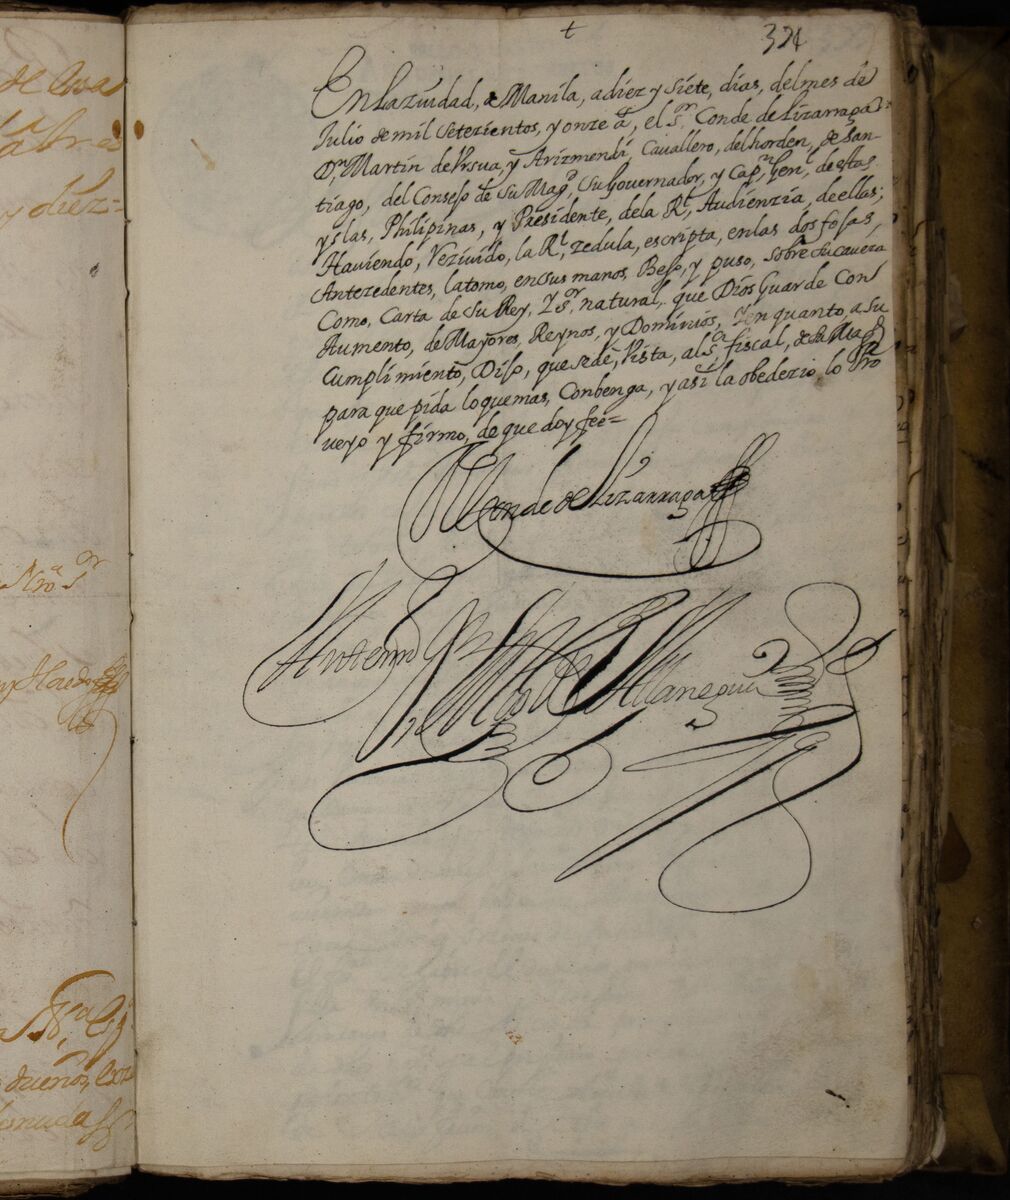 de las
y diez=
+
324
En la ziudad, de Manila, a diez y siete, dias, del mes de
Julio de mil setezientos, y onze a.s, el s.or Conde de Lizarraga
D.n Martin de Vrsua, y Arizmendi, Cavallero, del horden, de San-
tiago, del Consejo de Su Mag.d, Su Governador, y Cap.n Gen.l de estas
yslas, Philipinas, y Presidente, de la R.l Audienzia, de ellas;
Haviendo, Rezivido, la R.l zedula, escripta, en las dos fojas,
Antezedentes, la tomo, en sus manos, Beso, y puso, sobre su caveza
Como, Carta de Su Rey, y s.or natural, que Dios Guarde Con
Aumento, de Mayores, Reynos, y Dominios, Y en quanto, a su
Cumplimiento, Dijo, que se dé, Vista, al s.or fiscal, de Su Mag.d
para que pida lo que mas, Conbenga, y assi la obedezio, lo Pro
veyo y firmo, de que doy fee=
El Conde de Lizarraga
Allanegui
dueños,